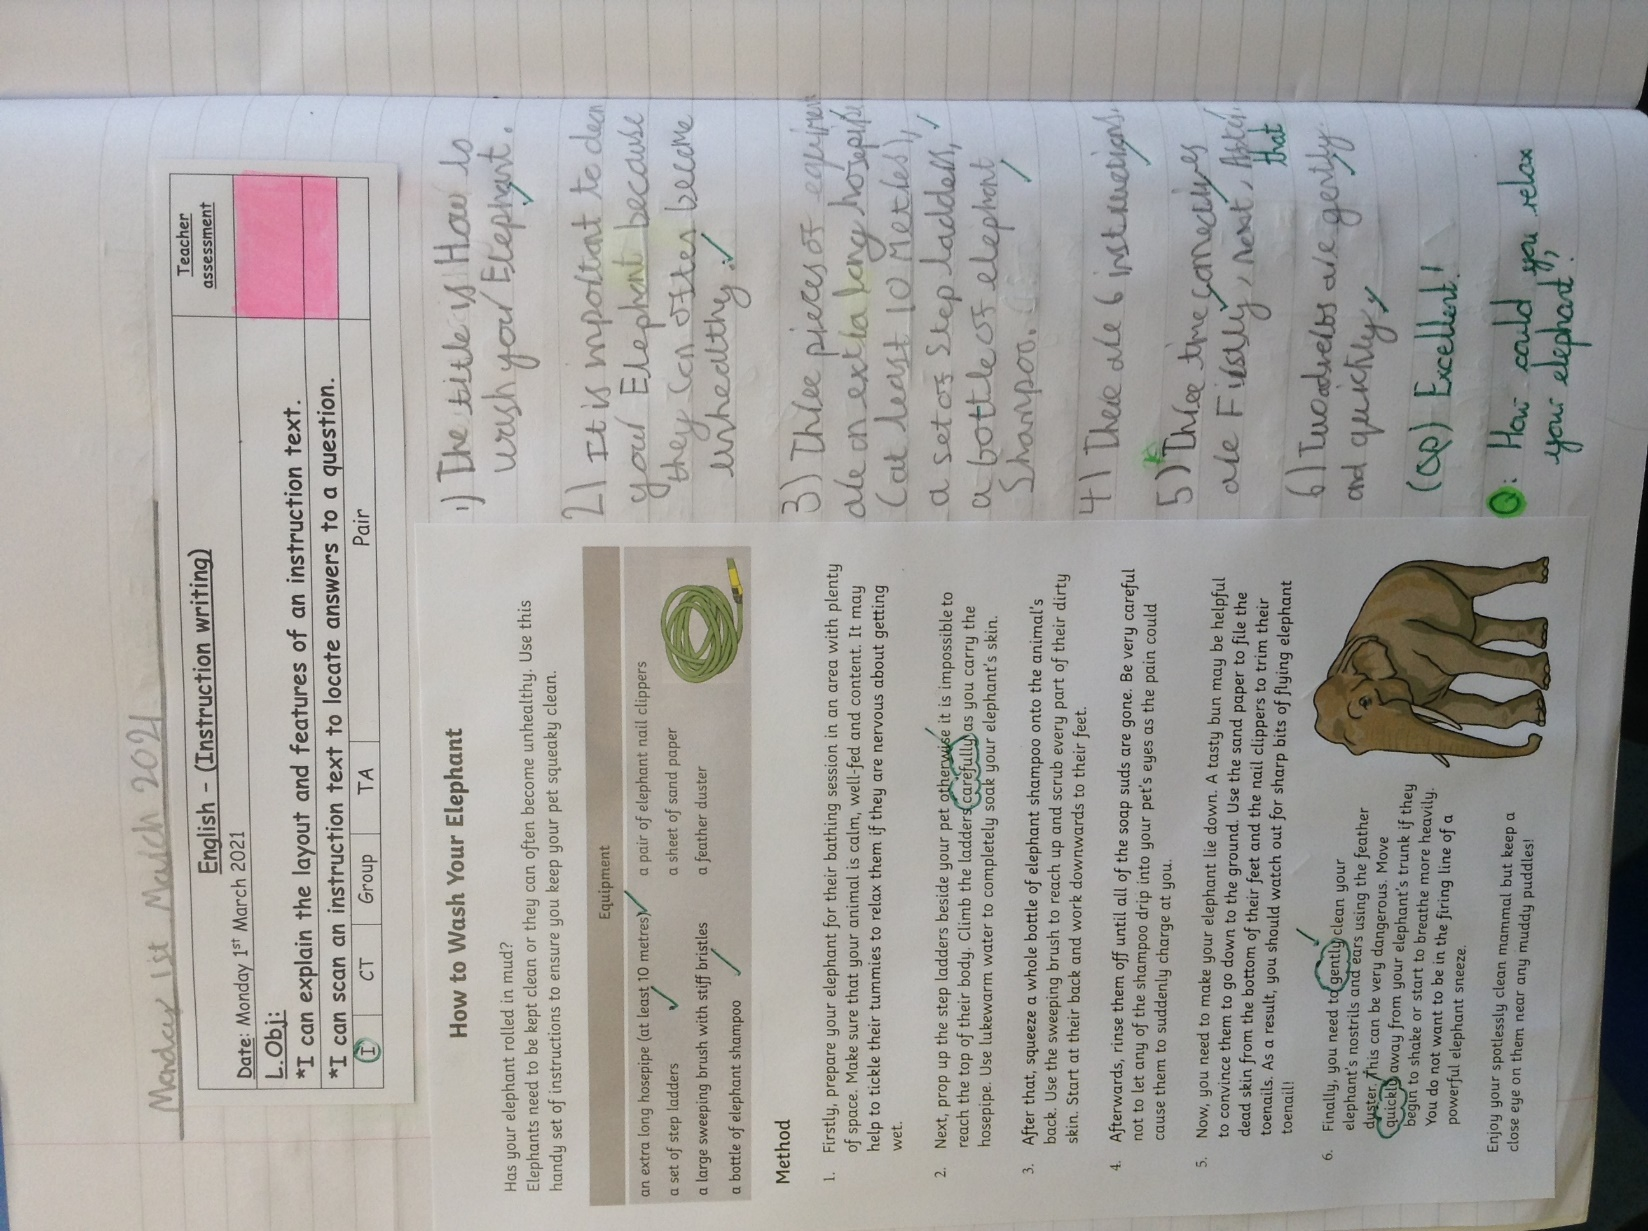 Monday 1st March 2021
English – (Instruction writing)
Teacher
assessment
Date: Monday 1st March 2021
L.Obj:
*I can explain the layout and features of an instruction text.
*I can scan an instruction text to locate answers to a question.
I CT Group TA Pair
How to Wash Your Elephant
Has your elephant rolled in mud?
Elephants need to be kept clean or they can often become unhealthy. Use this
handy set of instructions to ensure you keep your pet squeaky clean.
Equipment
an extra long hosepipe (at least 10 metres)
a set of step ladders
a large sweeping brush with stiff bristles
a bottle of elephant shampoo
a pair of elephant nail clippers
a sheet of sand paper
a feather duster
Method
1. Firstly, prepare your elephant for their bathing session in an area with plenty
of space. Make sure that your animal is calm, well-fed and content. It may
help to tickle their tummies to relax them if they are nervous about getting
wet.
2. Next, prop up the step ladders beside your pet otherwise it is impossible to
reach the top of their body. Climb the ladders carefully as you carry the
hosepipe. Use lukewarm water to completely soak your elephant's skin.
3. After that, squeeze a whole bottle of elephant shampoo onto the animal's
back. Use the sweeping brush to reach up and scrub every part of their dirty
skin. Start at their back and work downwards to their feet.
4. Afterwards, rinse them off until all of the soap suds are gone. Be very careful
not to let any of the shampoo drip into your pet's eyes as the pain could
cause them to suddenly charge at you.
5. Now, you need to make your elephant lie down. A tasty bun may be helpful
to convince them to go down to the ground. Use the sand paper to file the
dead skin from the bottom of their feet and the nail clippers to trim their
toenails. As a result, you should watch out for sharp bits of flying elephant
toenail!
6. Finally, you need to gently clean your
elephant's nostrils and ears using the feather
duster. This can be very dangerous. Move
quickly away from your elephant's trunk if they
begin to shake or start to breathe more heavily.
You do not want to be in the firing line of a
powerful elephant sneeze.
Enjoy your spotlessly clean mammal but keep a
close eye on them near any muddy puddles!
1) The tittle is How to
wash your Elephant.
2) It is important to clean
your Elephant because
they can often become
unhealthy.
3) Three pieces of equipment
are an extra long hosepipe
(at least 10 Metres),
a set of Step ladders,
a bottle of elephant
Shampoo.
4) There are 6 instructions.
5) Three time conectives
are Firstly, next, After
that
6) Two adverbs are gently
and quickly
Excellent!
Q: How could you relax
your elephant?